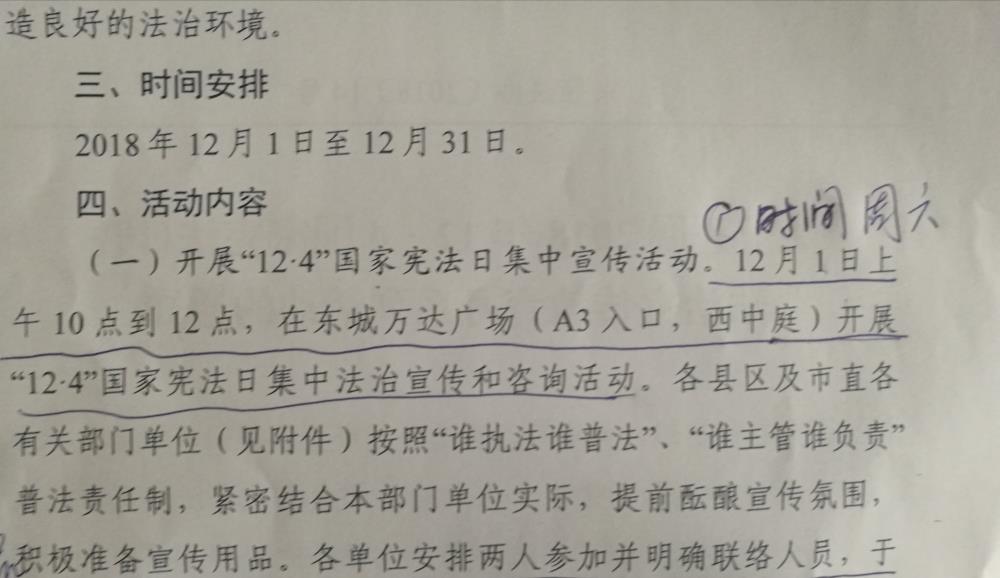 造良好的法治环境。
三、时间安排
2018年12月1日至12月31日。
四、活动内容
①时间 周六
（一）开展“12·4”国家宪法日集中宣传活动。12月1日上
午10点到12点，在东城万达广场（A3入口，西中庭）开展
“12·4”国家宪法日集中法治宣传和咨询活动。各县区及市直各
有关部门单位（见附件）按照“谁执法谁普法”、“谁主管谁负责”
普法责任制，紧密结合本部门单位实际，提前酝酿宣传氛围，
积极准备宣传用品。各单位安排两人参加并明确联络人员，于